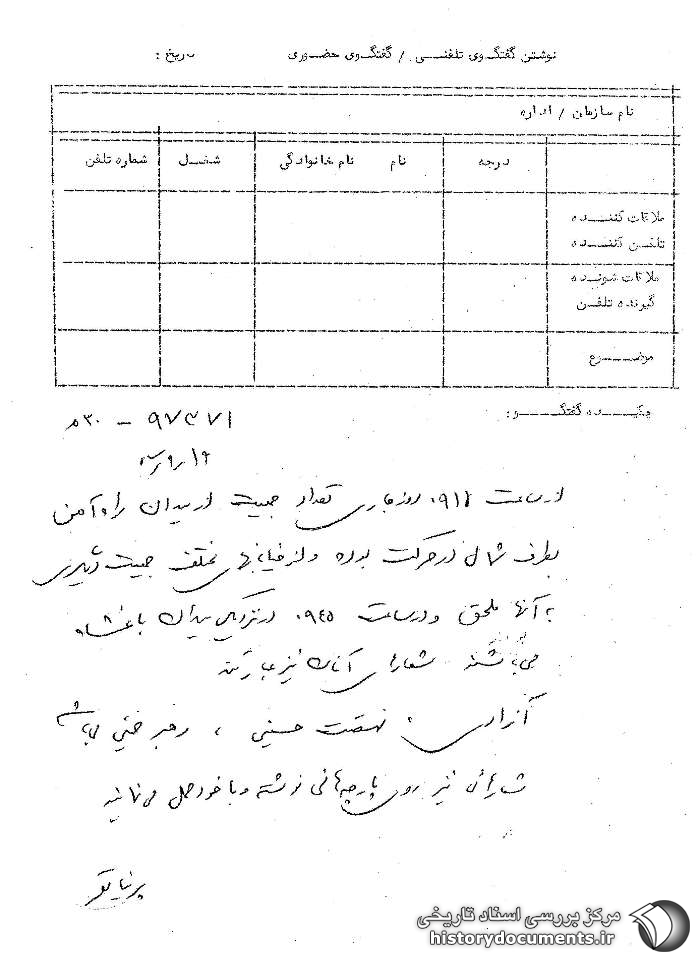 نوشتن گفتگوی تلفنی / گفتگوی حضوری تاریخ :
نام سازمان / اداره
درجه نام نام خانوادگی شغل شماره تلفن
ملاقات کننده
تلفن کننده
ملاقات شونده
گیرنده تلفن
موضوع
چکیده گفتگو :
۹۷۳۷۱ – ۳۰م
از ساعت ۰۹۱۲ روز جاری تعداد جمعیت از میدان راه‌آهن
بطرف شمال در حرکت بوده و از خیابانهای مختلف جمعیت دیگری
به آنها ملحق و در ساعت ۰۹۴۵ در نزدیکی میدان باغشاه
می‌باشند شعارهای آنان نیز عبارتند
آزادی ، نهضت حسینی ، رهبر خمینی میباشد
شعارهائی نیز روی پارچه‌هائی نوشته و با خود حمل می‌نمایند
مرکز بررسی اسناد تاریخی
historydocuments.ir